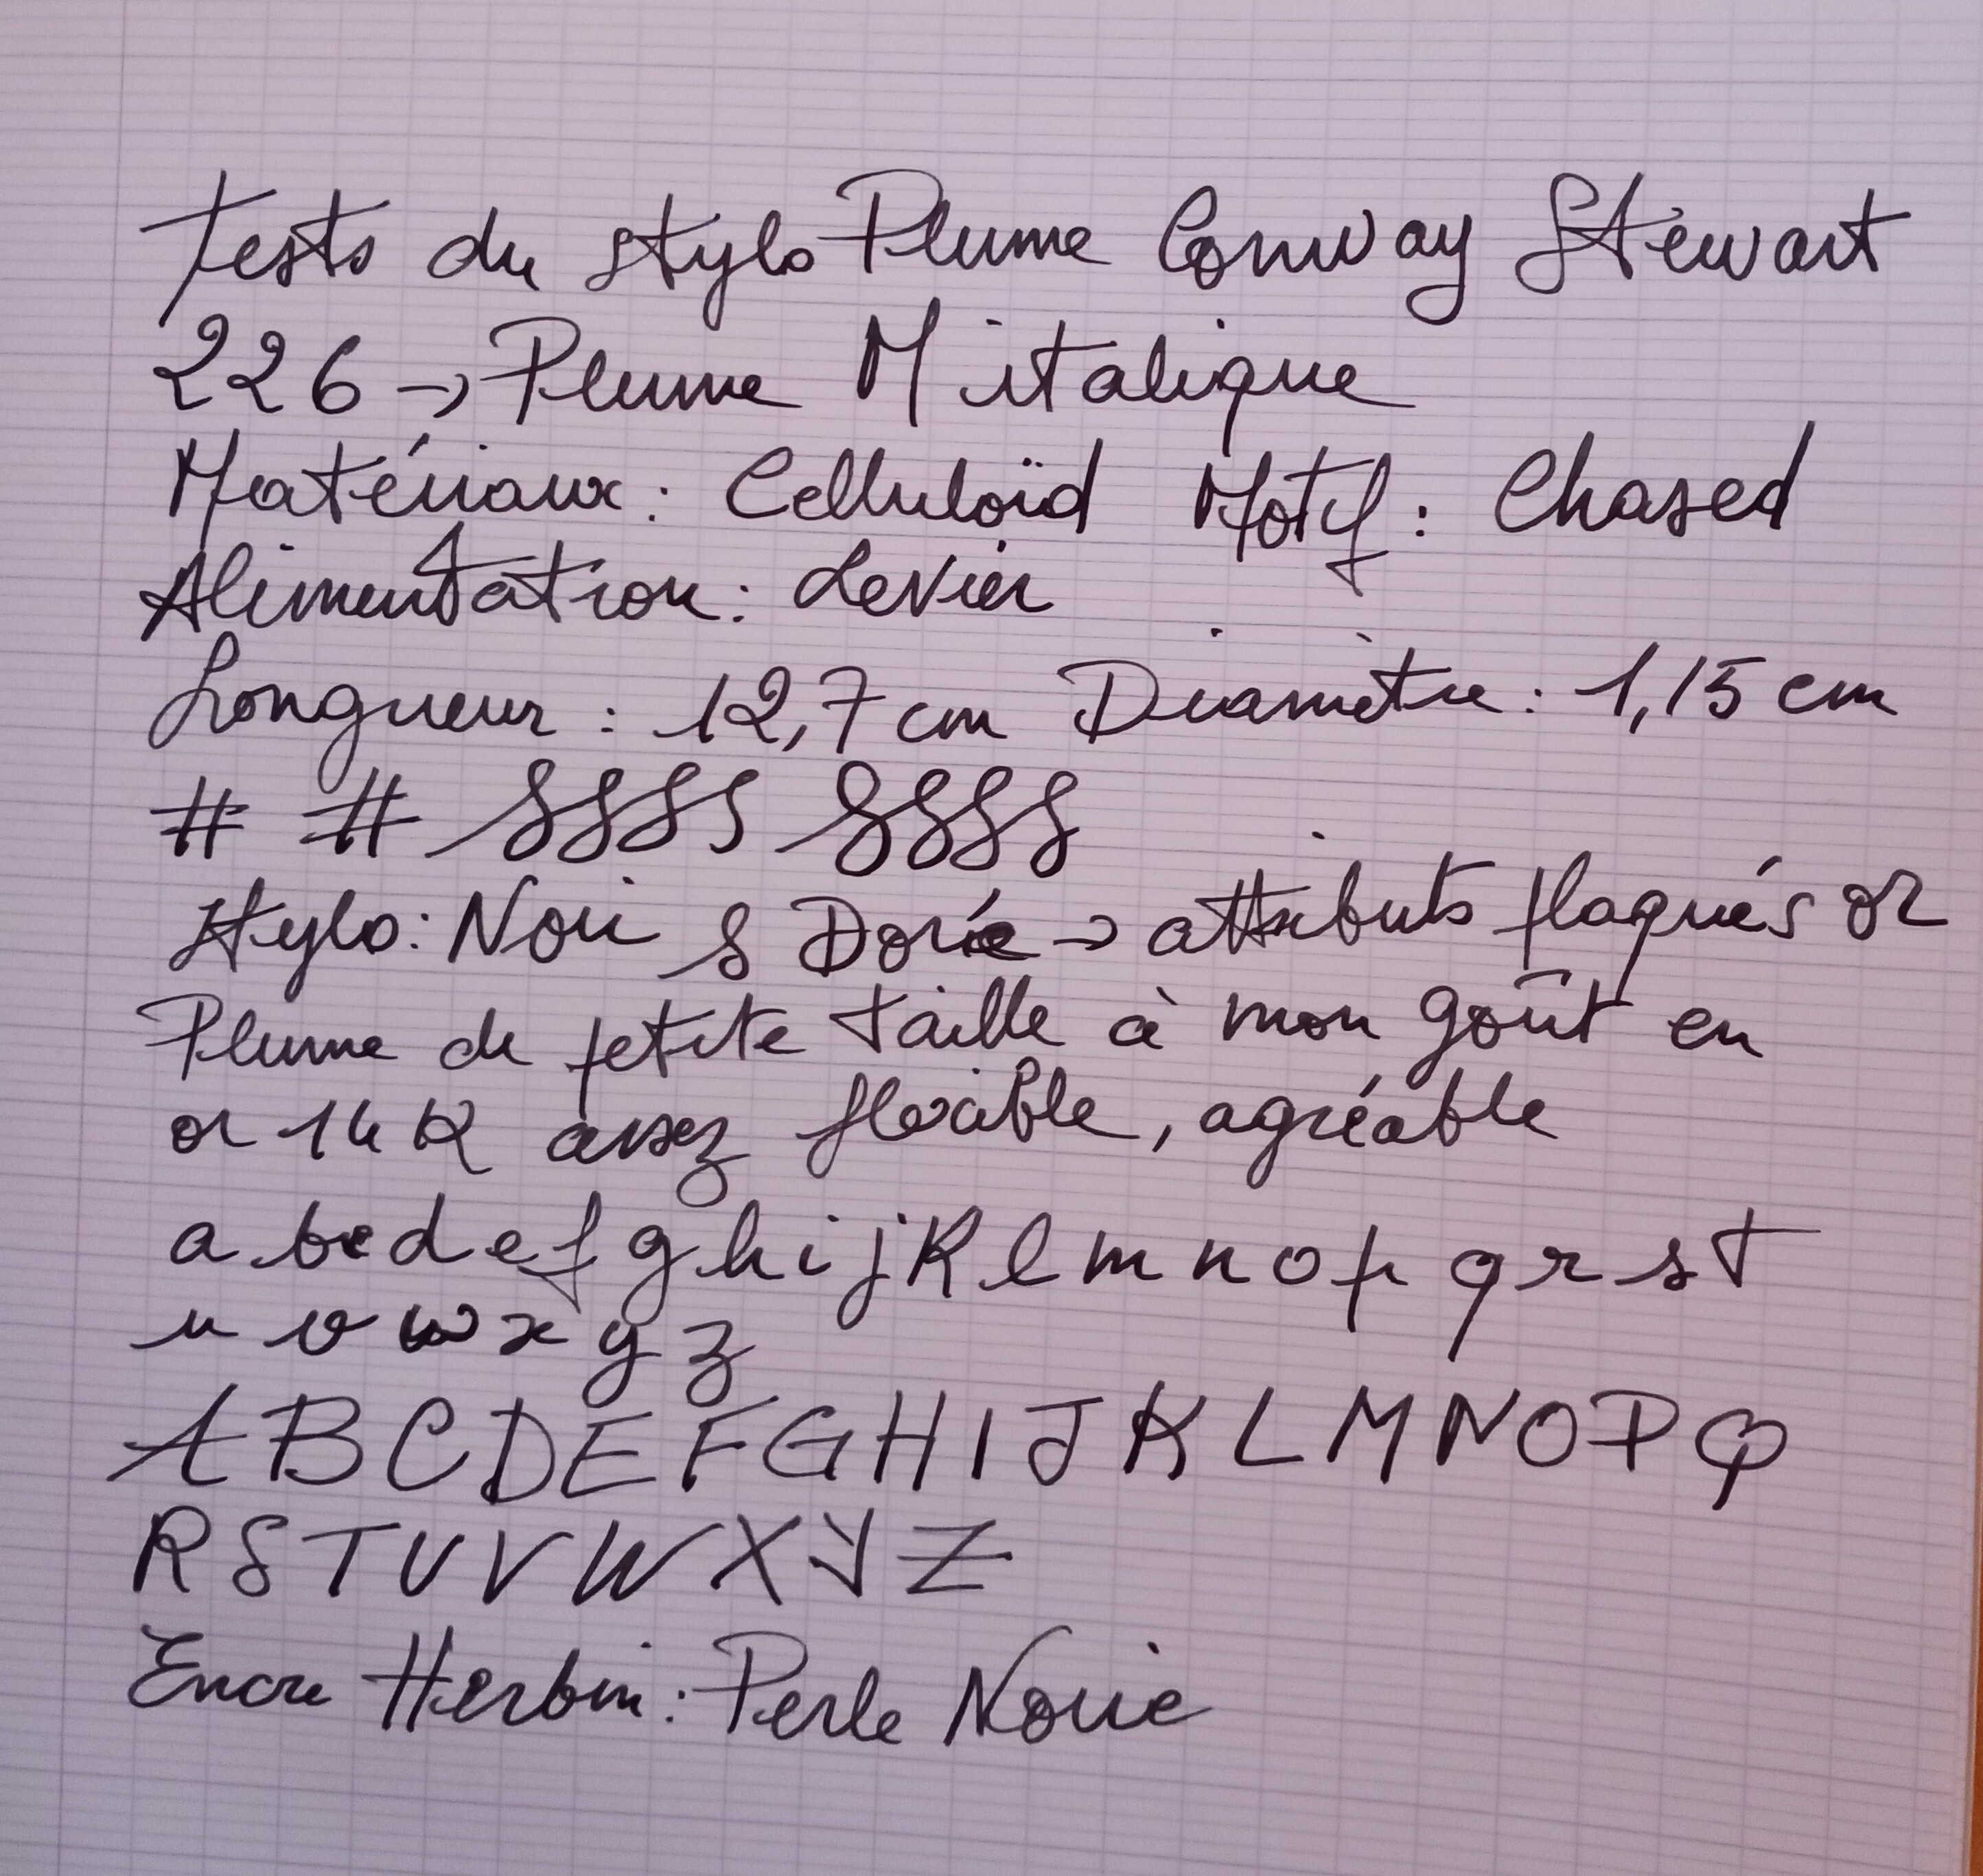 Tests du stylo Plume Conway Stewart
226 → Plume M italique
Matériaux : Celluloïd Motif : Chased
Alimentation : Levier
Longueur : 12,7 cm Diamètre : 1,15 cm
# # SSSS SSSS
Stylo : Noir & Dorée → attributs plaqués or
Plume de petite taille à mon goût en
or 14 K assez flexible, agréable
a b c d e f g h i j k l m n o p q r s t
u v w x y z
A B C D E F G H I J K L M N O P Q
R S T U V W X Y Z
Encre Herbin : Perle Noire